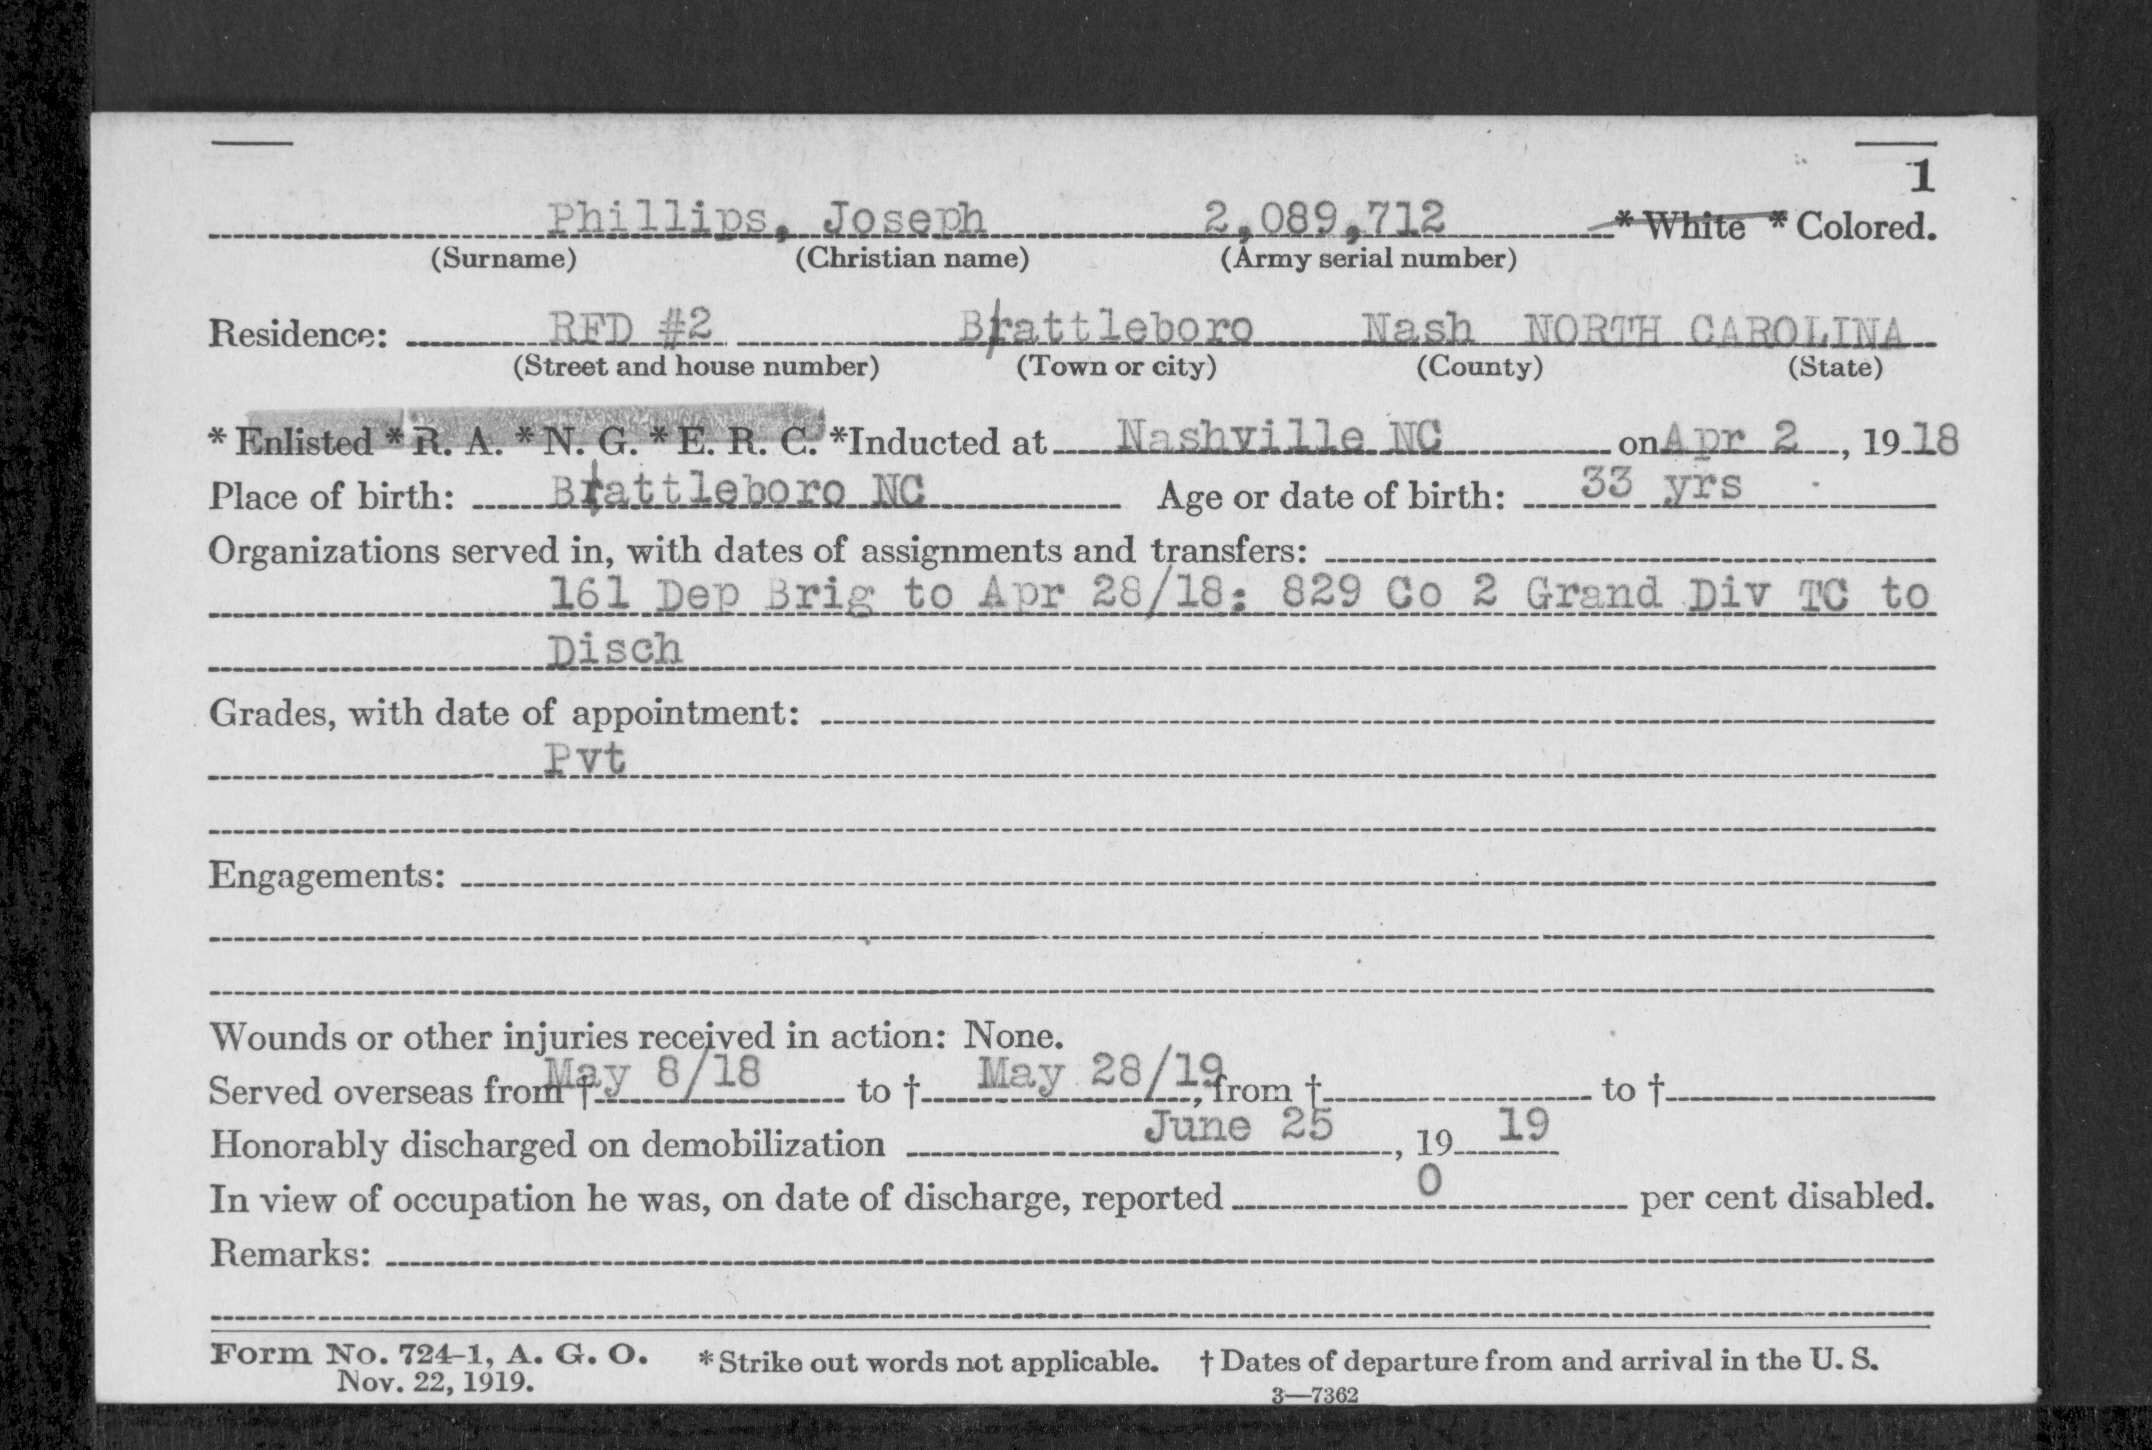 1
Phillips, Joseph 2,089,712 * White * Colored.
(Surname) (Christian name) (Army serial number)
Residence: RFD #2 Brattleboro Nash NORTH CAROLINA
(Street and house number) (Town or city) (County) (State)
* Enlisted * R. A. * N. G. * E. R. C. *Inducted at Nashville NC on Apr 2, 1918
Place of birth: Brattleboro NC Age or date of birth: 33 yrs
Organizations served in, with dates of assignments and transfers:
161 Dep Brig to Apr 28/18; 829 Co 2 Grand Div TC to
Disch
Grades, with date of appointment:
Pvt
Engagements:
Wounds or other injuries received in action: None.
Served overseas from † May 8/18 to † May 28/19, from † to †
Honorably discharged on demobilization June 25, 19 19
In view of occupation he was, on date of discharge, reported 0 per cent disabled.
Remarks:
Form No. 724-1, A. G. O. * Strike out words not applicable. † Dates of departure from and arrival in the U. S.
Nov. 22, 1919.
3—7362